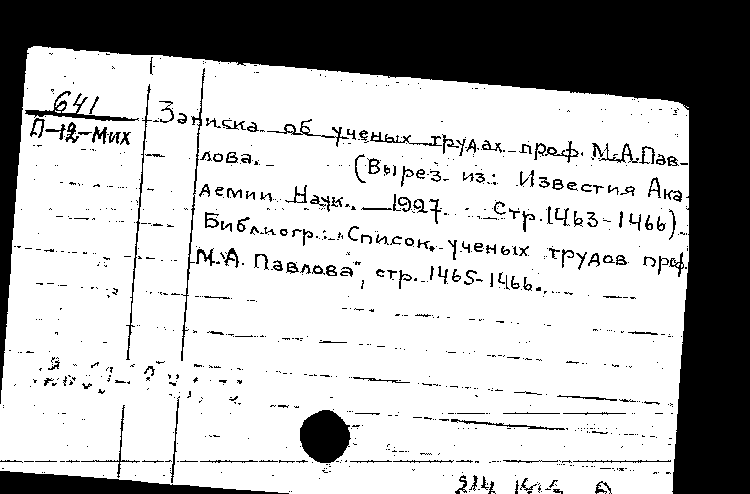 641
П-12-Мих
Записка об ученых трудах проф. М.А.Пав-
лова. (Вырез. из: Известия Ака-
демии Наук., 1927. Стр.1463-1466)
Библиогр.: „Список ученых трудов проф.
М.А. Павлова", стр. 1465-1466.